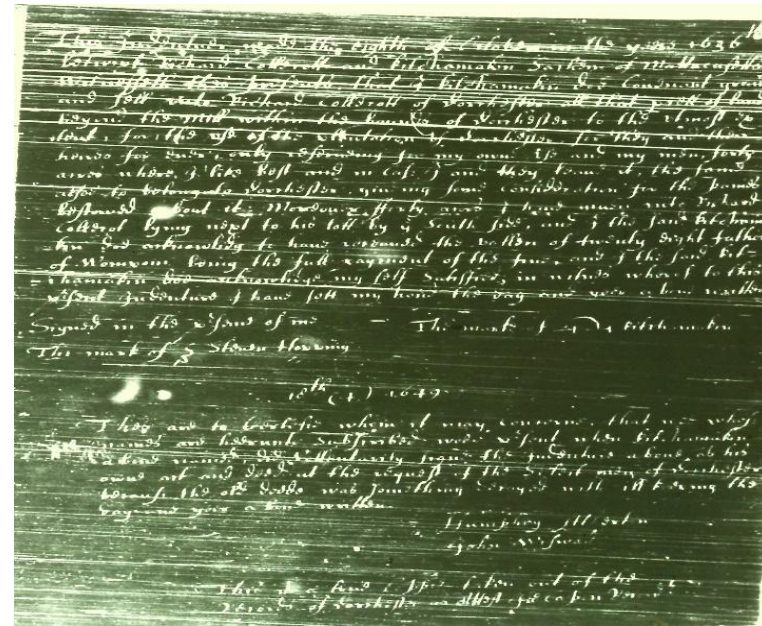 This Indenture made the eighth of October in the yeare 1636
betwixt Richard Collecott and Kitchamakin Sachem of Massachusetts
Witnesseth these presents that I Kitchamakin doe Covenant graunt
and sell unto Richard Collecott of Dorchester all that of land
beyond the Mill within the bounds of Dorchester to the utmost
for the use of the plantation of Dorchester for they and their
heires for ever only reserving for my owne use and my men forty
acres where I like best and in case I and they leave it the same
alsoe to belong to Dorchester giving some consideration for the paines
bestowed about it I have unto Richard
Collecot lying next to his lott by y South side and I the said Kitcham
kin doe acknowledg to have receaved the of twenty eight fathom
of Wampam being the full payment of the and I the said Kit-
chamakin doe acknowledge my self satisfied in witnes wherof to this
psent Indenture I have sett my hand the day and yeare above written
Signed in the psence of me The marke of Kitchmakin
The mark of Steven
10th (4) 1649
These are to Certefie whom it may concerne that wee whose
names are heerunto Subscribed were psent when Kitchamakin
above named did Volluntarily signe the Indenture above, as his
owne act and deed at the request of the Select men of Dorchester
because the old deede was somthing decayed with ill the
day and yere above written
Humphrey Atherton
John Wiswall
This is a true Copie taken out of the
Records of Dorchester as attest